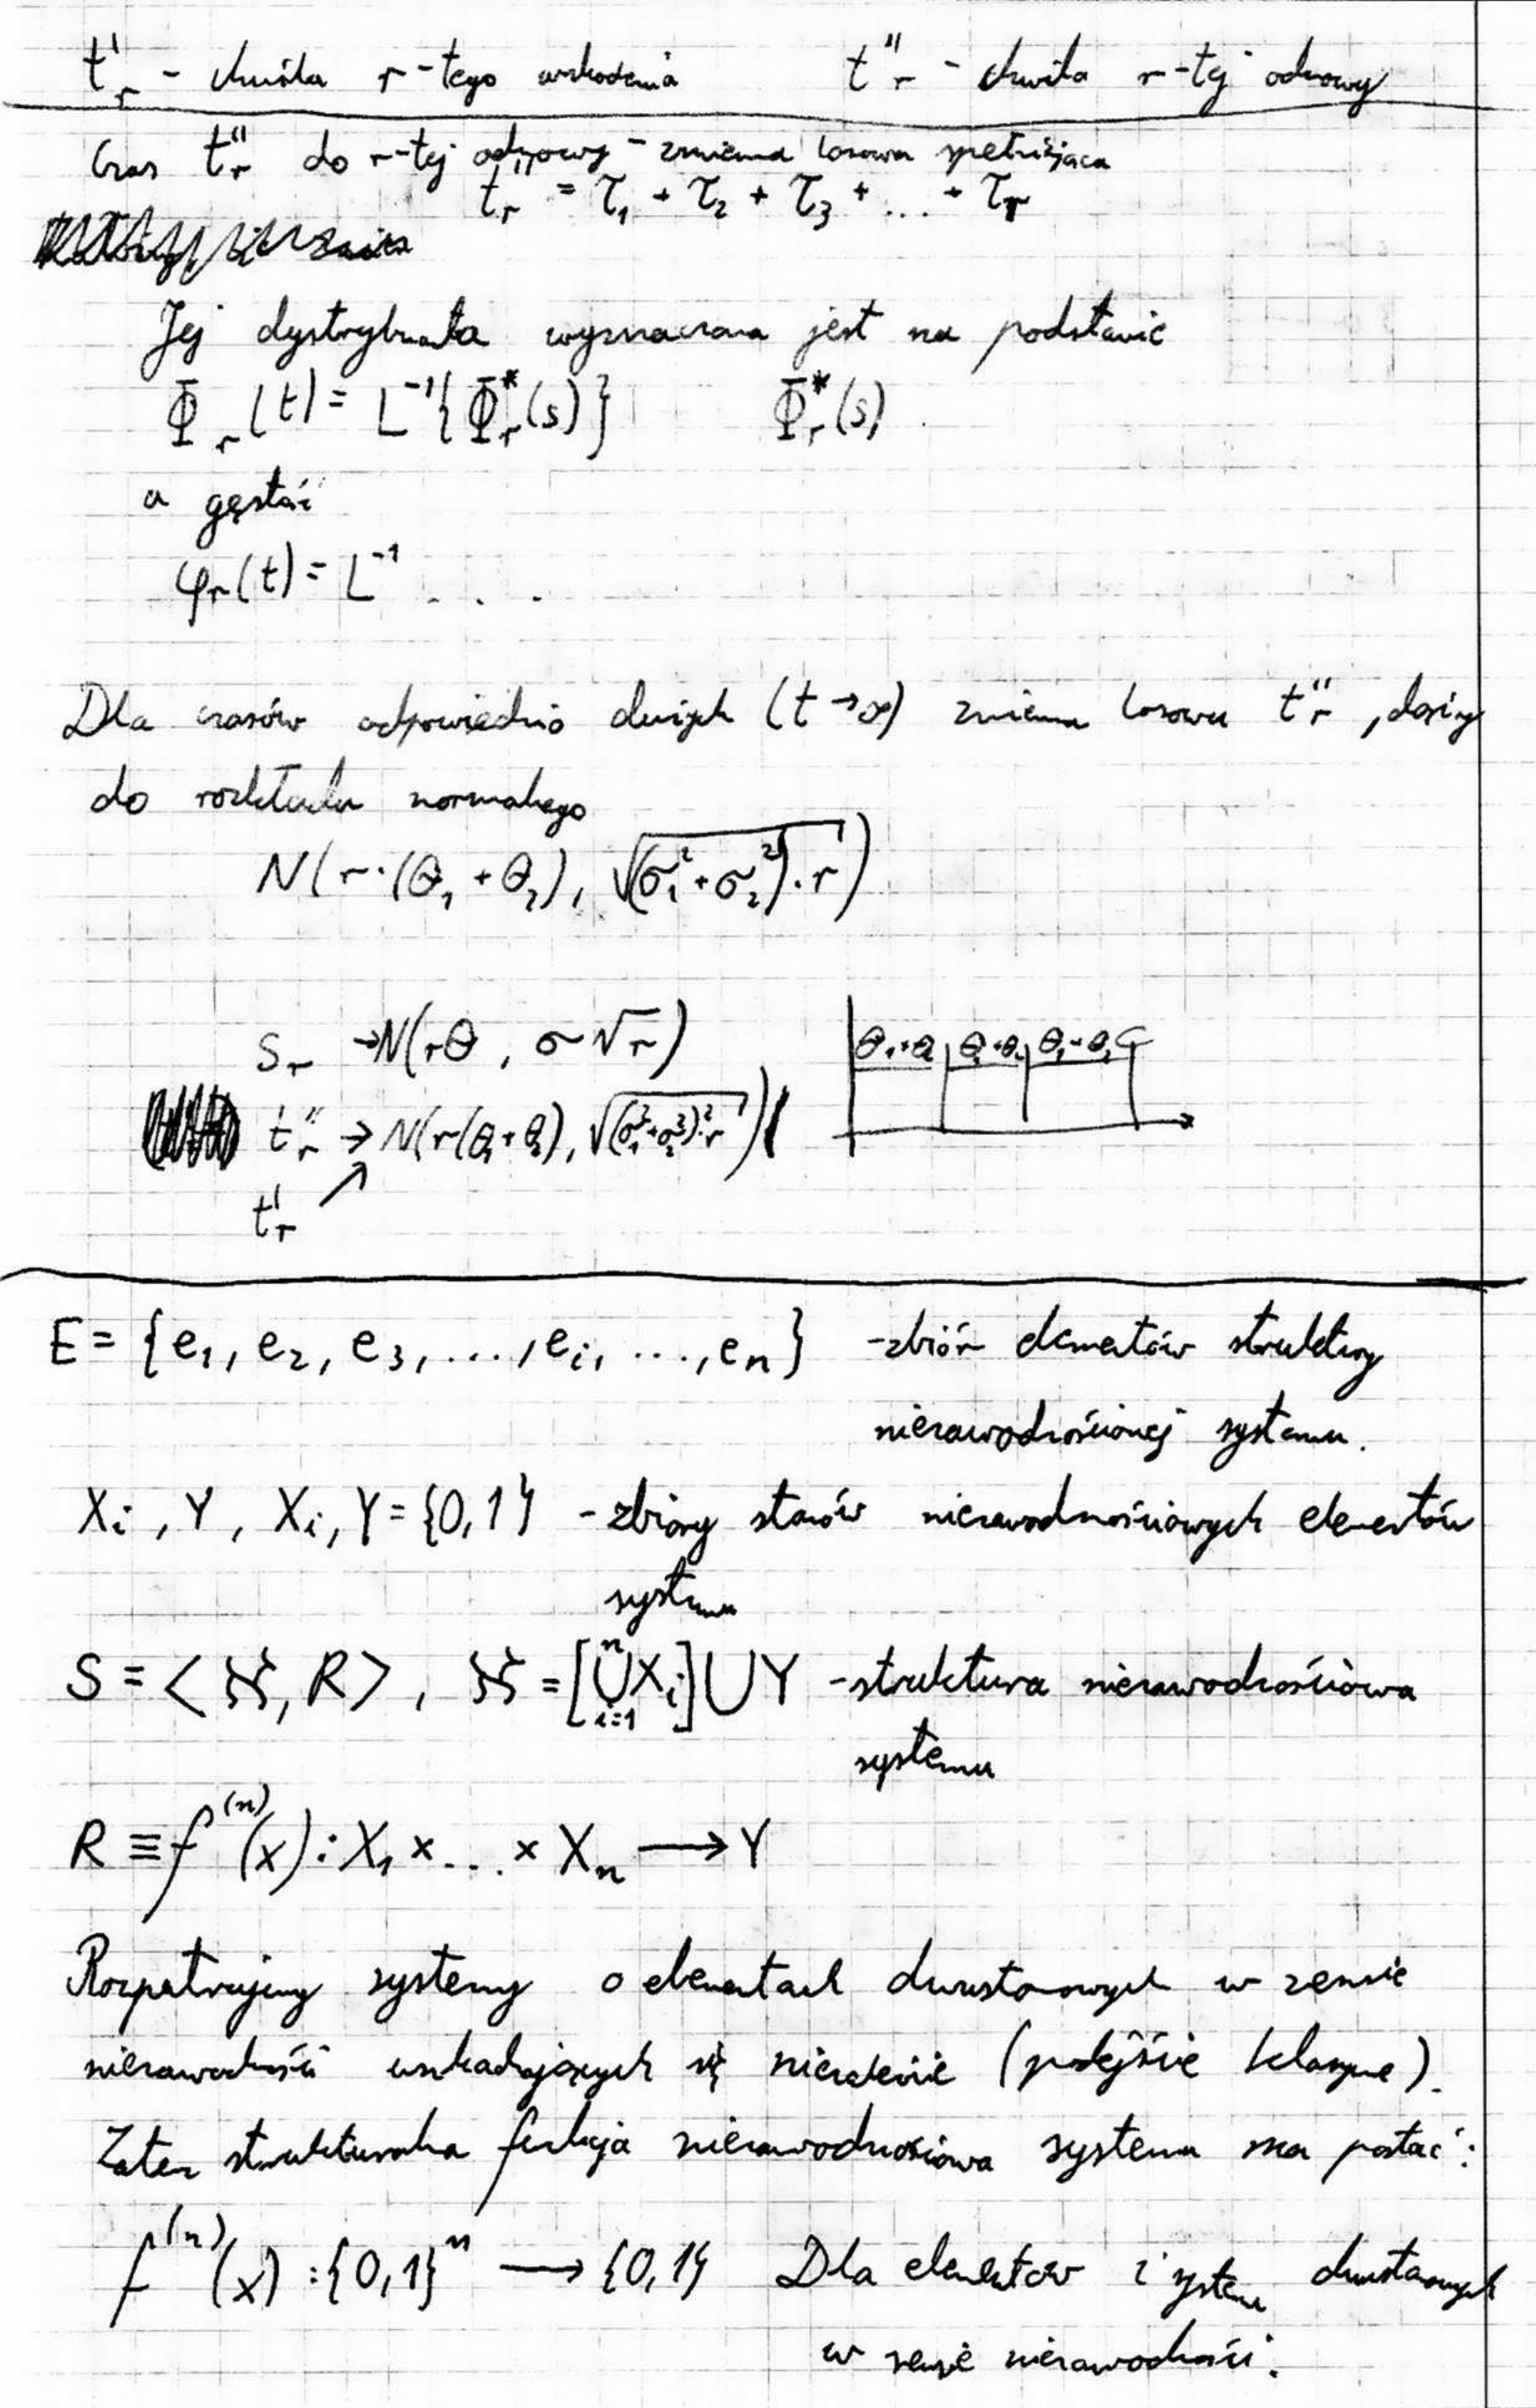 t'_r - chwila r-tego uszkodzenia t''_r - chwila r-tej odnowy
Czas t''_r do r-tej odnowy - zmienna losowa spełniająca
t''_r = τ₁ + τ₂ + τ₃ + ... + τ_r
Jej dystrybuanta wyznaczana jest na podstawie
Φ_r(t) = L⁻¹{Φ*_r(s)} Φ*_r(s)
a gęstość
φ_r(t) = L⁻¹ . . .
Dla czasów odpowiednio dużych (t→∞) zmienna losowa t''_r, dąży
do rozkładu normalnego
N(r·(Θ₁+Θ₂), √(σ₁²+σ₂²)·r)
S_r → N(rΘ, σ√r)
Θ₁+Θ₂ Θ₁+Θ₂ Θ₁+Θ₂
t''_r → N(r(Θ₁+Θ₂), √(σ₁²+σ₂²)²·r)
t'_r ↗
E = {e₁, e₂, e₃, ..., e_i, ..., e_n} - zbiór elementów struktury
niezawodnościowej systemu.
X_i, Y, X_i, Y = {0,1} - zbiory stanów niezawodnościowych elementów
systemu
S = <ℵ, R>, ℵ = [⋃_{i=1}^{n} X_i] ∪ Y - struktura niezawodnościowa
systemu
R ≡ f^(n)(x) : X₁ × ... × X_n ⟶ Y
Rozpatrujemy systemy o elementach dwustanowych w sensie
niezawodności uszkadzających się niezależnie (podejście klasyczne).
Zatem strukturalna funkcja niezawodnościowa systemu ma postać:
f^(n)(x) : {0,1}ⁿ ⟶ {0,1} Dla elementów i system dwustanowych
w sensie niezawodności.